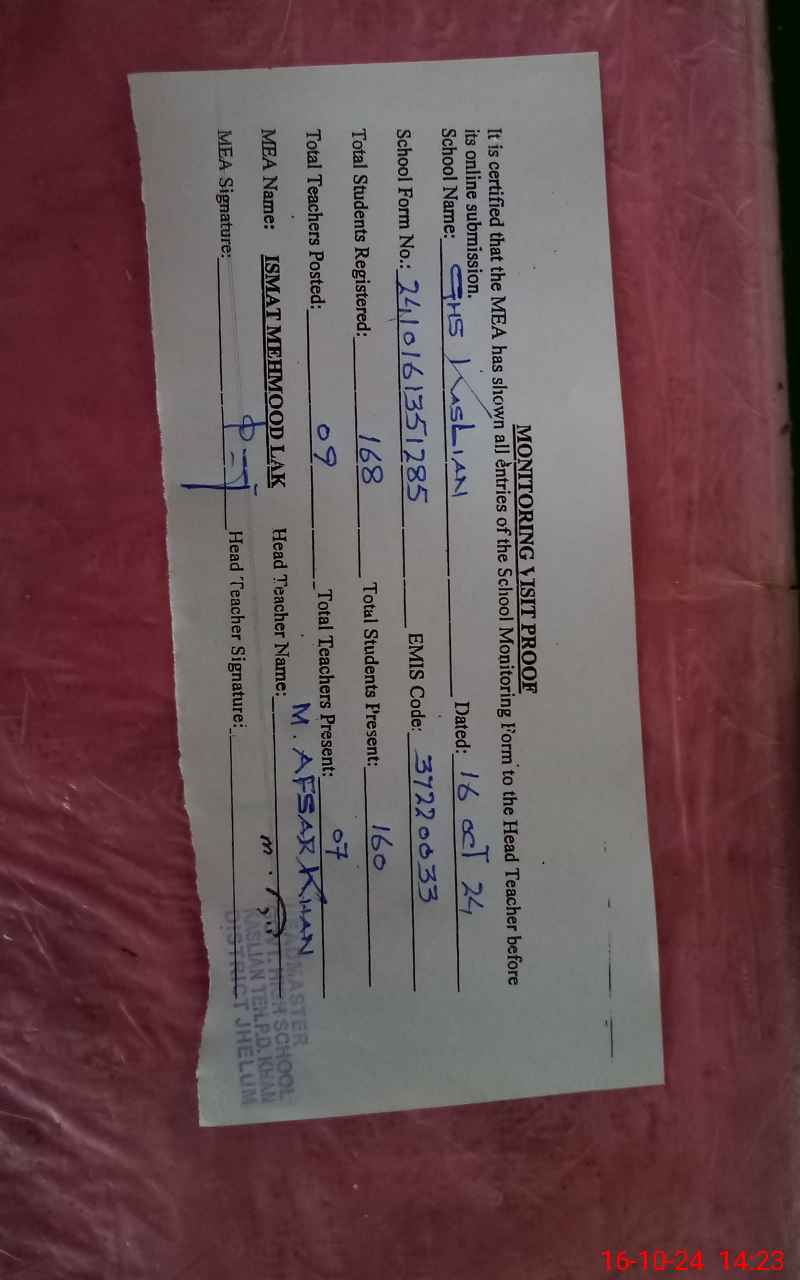 MONITORING VISIT PROOF
It is certified that the MEA has shown all entries of the School Monitoring Form to the Head Teacher before
its online submission.
School Name: GHS KASLIAN Dated: 16 OCT 24
School Form No.: 2410161351285 EMIS Code: 37220033
Total Students Registered: 168 Total Students Present: 160
Total Teachers Posted: 09 Total Teachers Present: 07
MEA Name: ISMAT MEHMOOD LAK Head Teacher Name: M. AFSAR KHAN
MEA Signature: Head Teacher Signature:
HEADMASTER
GOVT. HIGH SCHOOL
KASLIAN TEH. P.D. KHAN
DISTRICT JHELUM
16-10-24 14:23